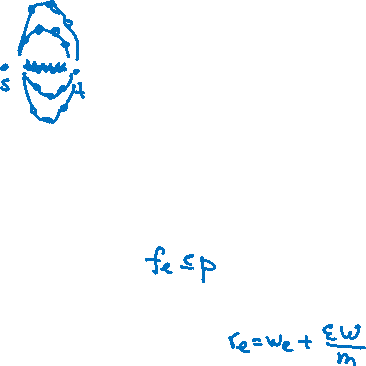 s t
f_e ≤ p
r_e = w_e + εW/m